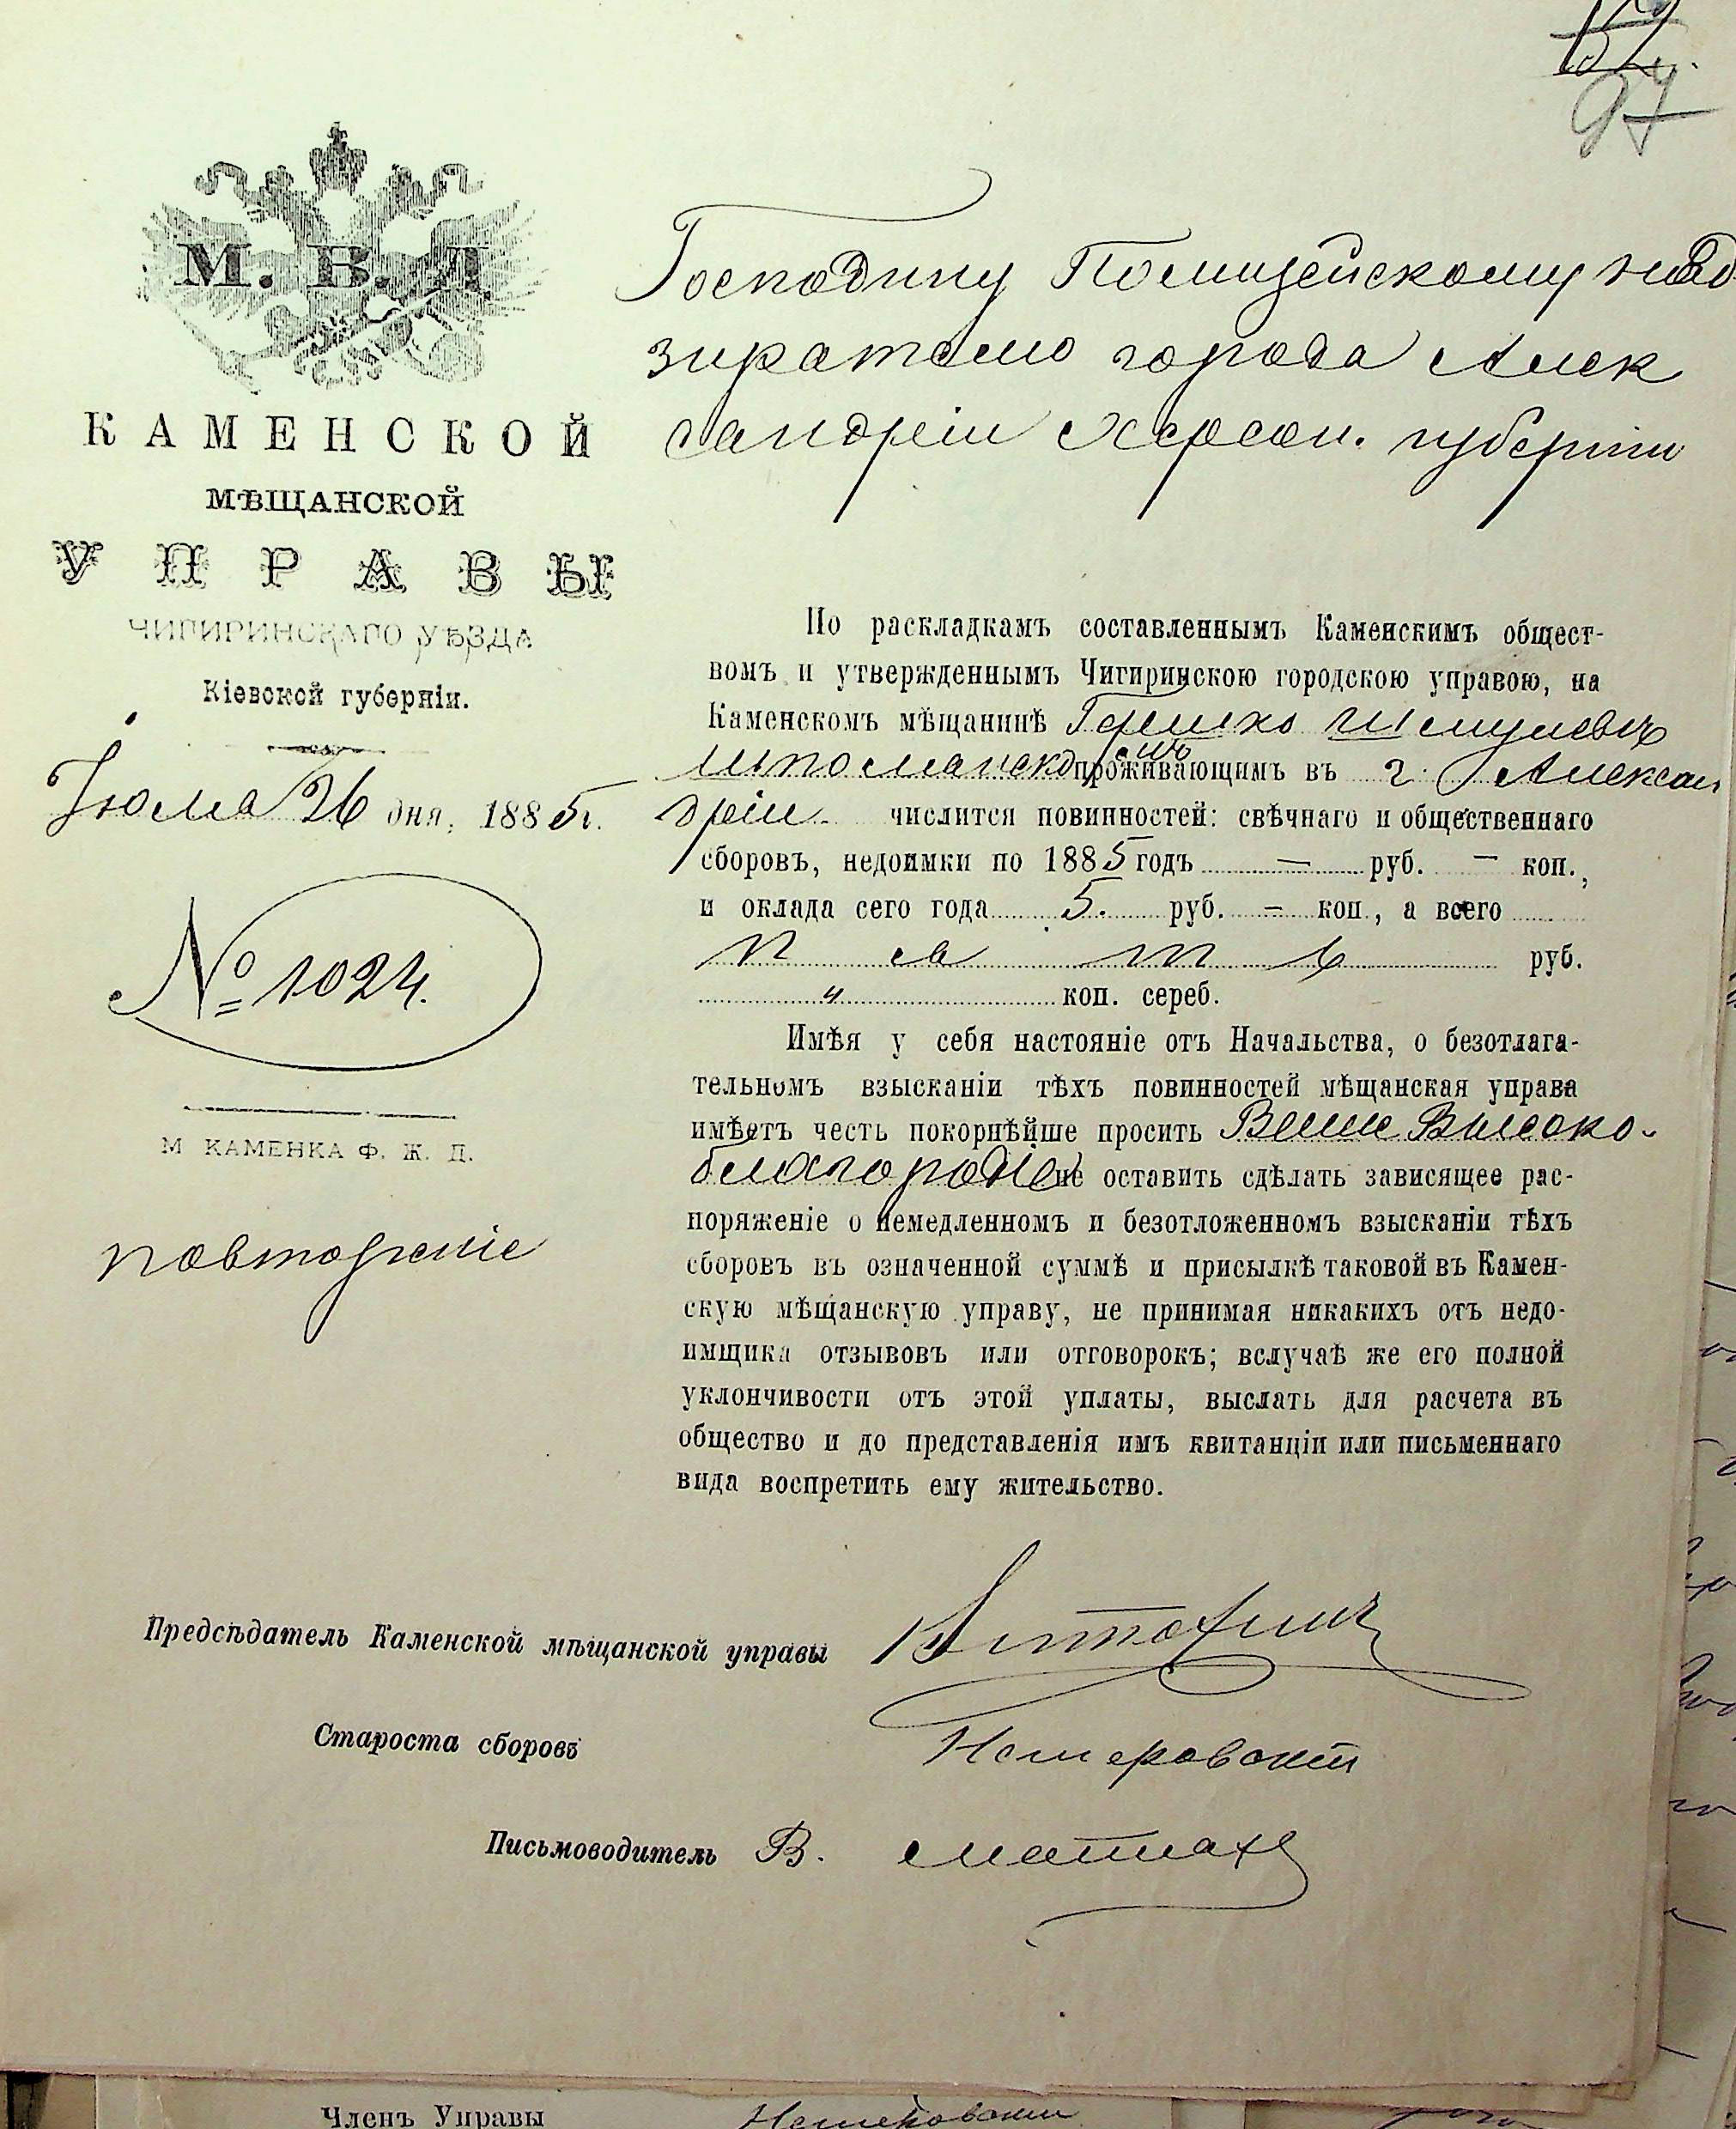 97
М. В. Д
КАМЕНСКОЙ
МѢЩАНСКОЙ
УПРАВЫ
ЧИГИРИНСКАГО УѢЗДА
Кіевской губерніи.
Іюля 26 дня, 1885 г.
№ 1024.
М КАМЕНКА Ф. Ж. Д.
повтореніе
Господину Полицейскому над
зирателю города Алек
сандріи Херсон. губерніи
По раскладкамъ составленнымъ Каменскимъ общест-
вомъ и утвержденнымъ Чигиринскою городскою управою, на
Каменскомъ мѣщанинѣ Гершко Шмулевич
проживающимъ въ г. Алексан
дріи числится повинностей: свѣчнаго и общественнаго
сборовъ, недоимки по 1885 годъ — руб. — коп.,
и оклада сего года 5. руб. — коп., а всего
пять руб.
" коп. сереб.
Имѣя у себя настояніе отъ Начальства, о безотлага-
тельномъ взысканіи тѣхъ повинностей мѣщанская управа
имѣетъ честь покорнѣйше просить Ваше Высоко-
благородіе не оставить сдѣлать зависящее рас-
поряженіе о немедленномъ и безотложенномъ взысканіи тѣхъ
сборовъ въ означенной суммѣ и присылкѣ таковой въ Камен-
скую мѣщанскую управу, не принимая никакихъ отъ недо-
имщика отзывовъ или отговорокъ; вслучаѣ же его полной
уклончивости отъ этой уплаты, выслать для расчета въ
общество и до представленія имъ квитанціи или письменнаго
вида воспретить ему жительство.
Предсѣдатель Каменской мѣщанской управы
Староста сборовъ Немеровскій
Письмоводитель В.
Членъ Управы Немеровскій